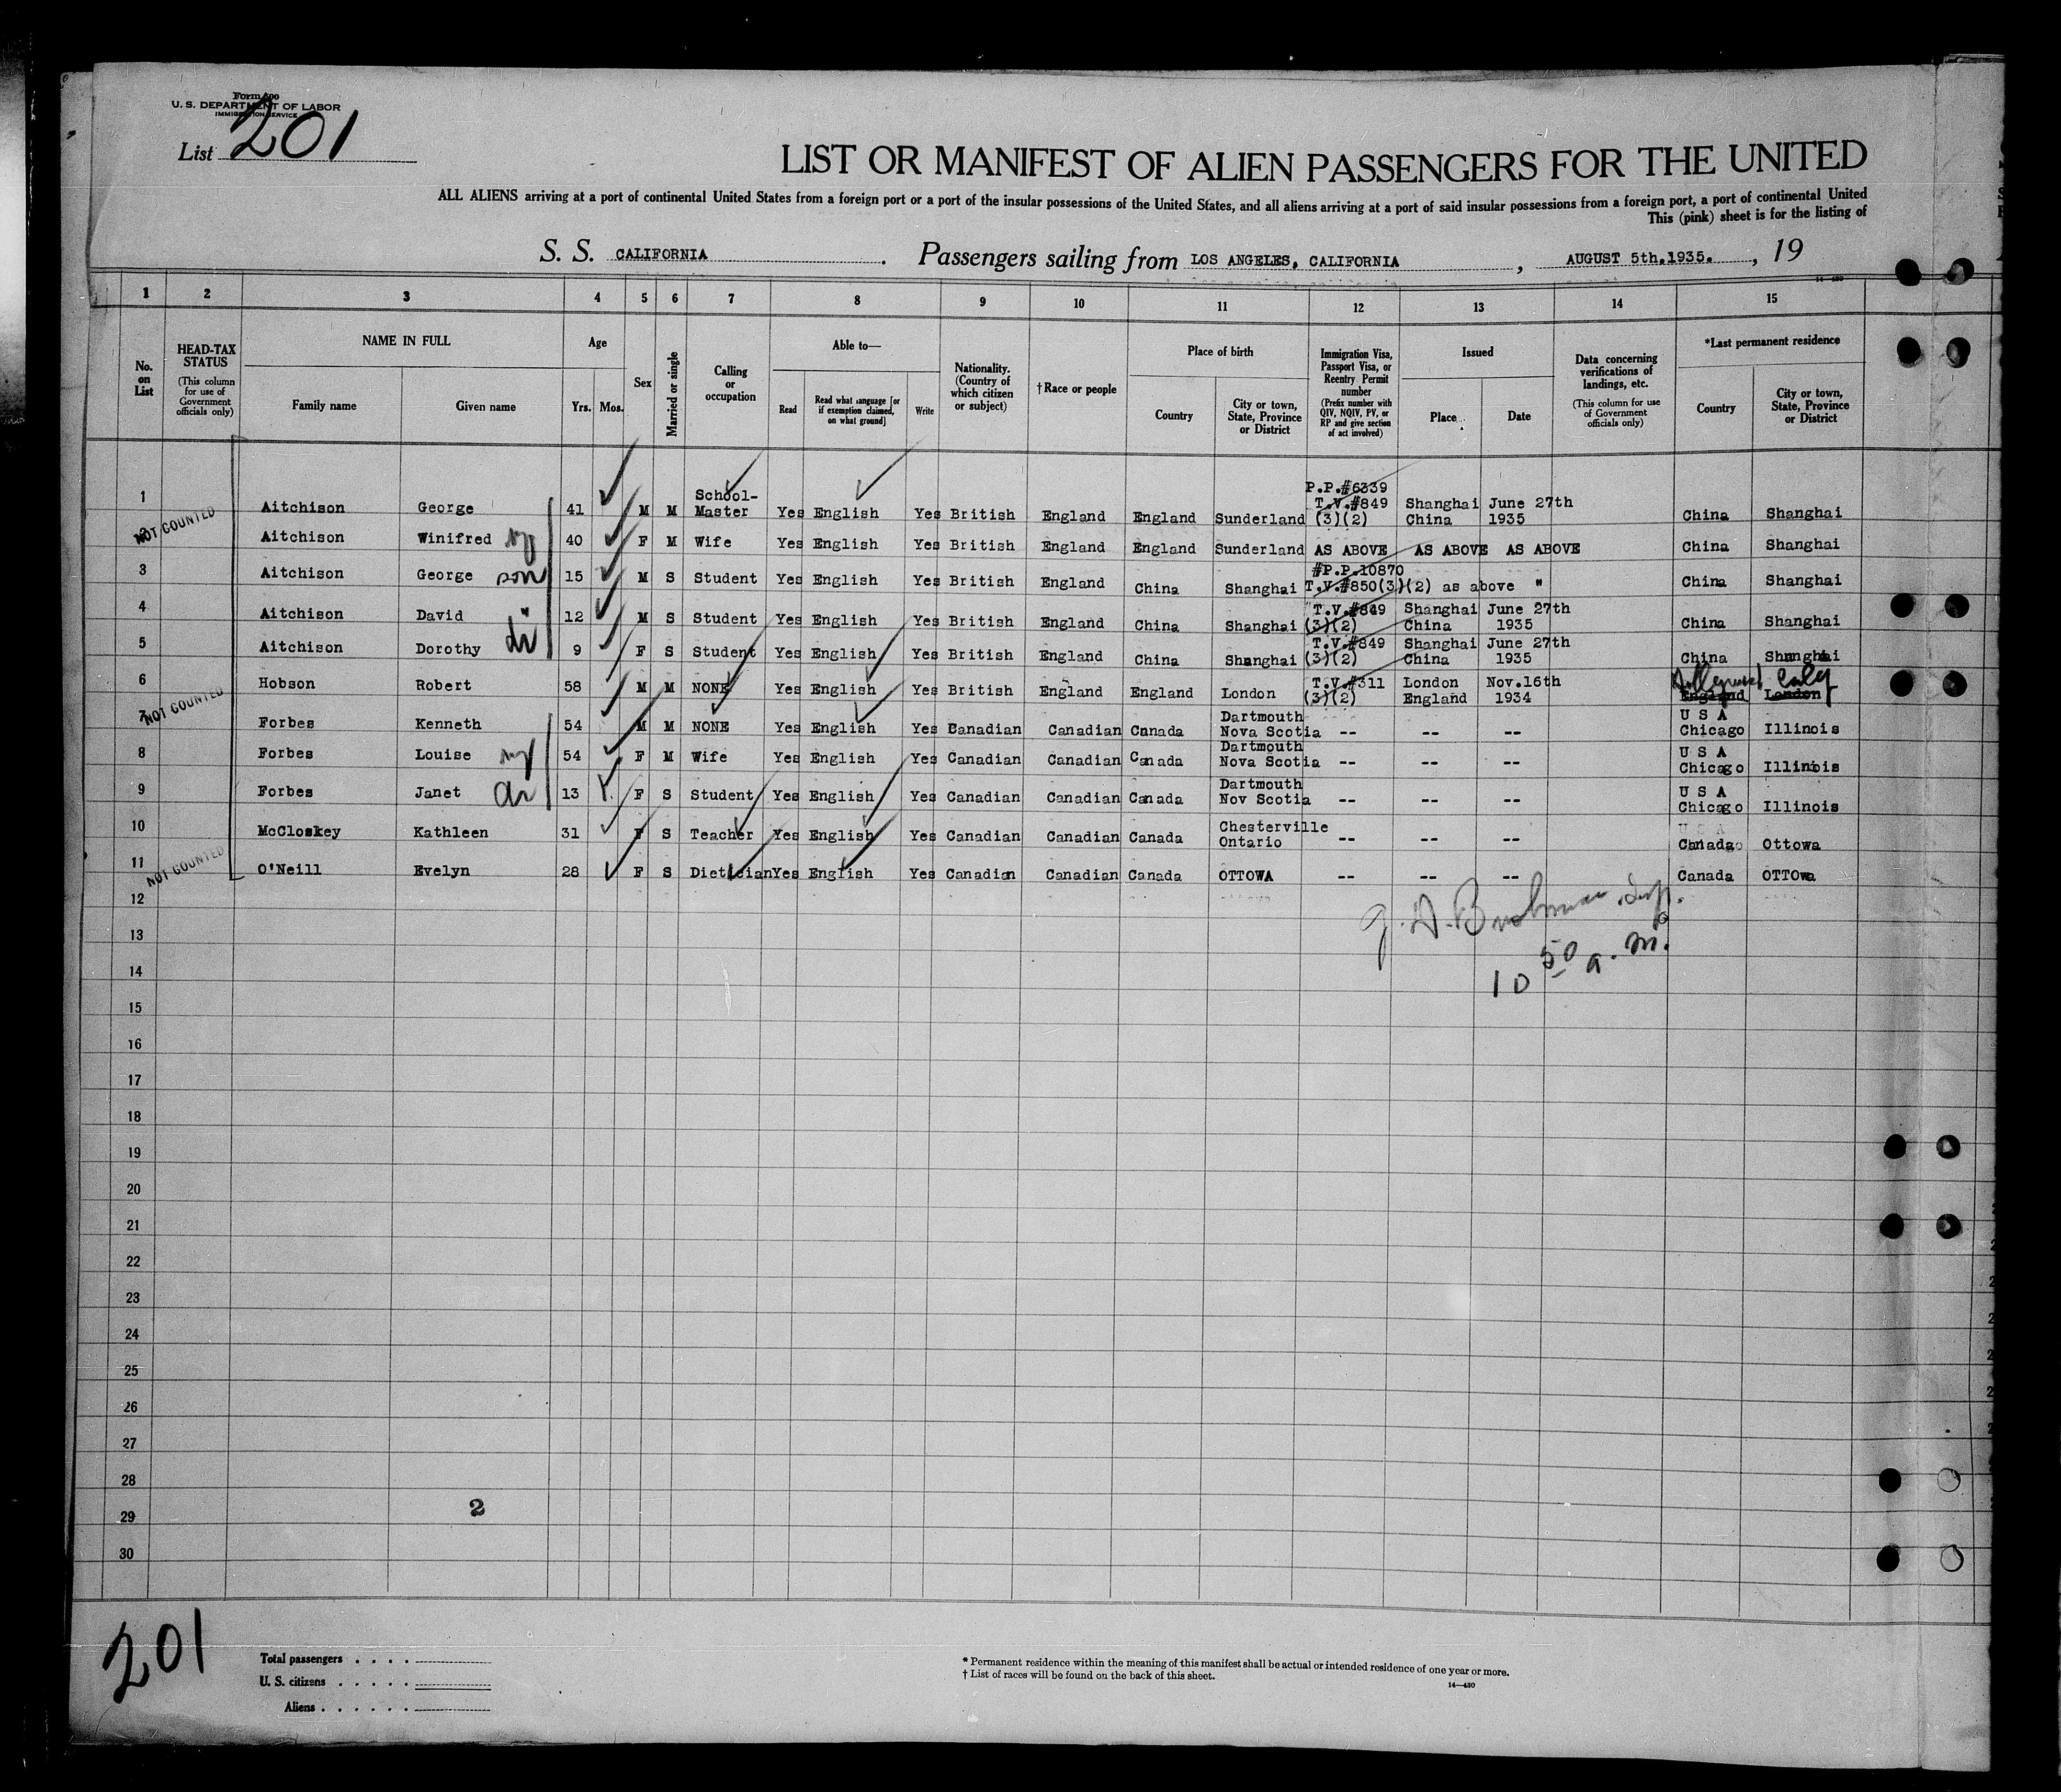 Form 500
U. S. DEPARTMENT OF LABOR
IMMIGRATION SERVICE
List 201
LIST OR MANIFEST OF ALIEN PASSENGERS FOR THE UNITED
ALL ALIENS arriving at a port of continental United States from a foreign port or a port of the insular possessions of the United States, and all aliens arriving at a port of said insular possessions from a foreign port, a port of continental United
This (pink) sheet is for the listing of
S. S. CALIFORNIA. Passengers sailing from LOS ANGELES, CALIFORNIA, AUGUST 5th.1935., 19
14—430
1 2 3 4 5 6 7 8 9 10 11 12 13 14 15
No. on List
HEAD-TAX STATUS (This column for use of Government officials only)
NAME IN FULL
Family name Given name
Age
Yrs. Mos.
Sex
Married or single
Calling or occupation
Able to—
Read Read what language [or if exemption claimed, on what ground] Write
Nationality. (Country of which citizen or subject)
†Race or people
Place of birth
Country City or town, State, Province or District
Immigration Visa, Passport Visa, or Reentry Permit number (Prefix number with QIV, NQIV, PV, or RP and give section of act involved)
Issued
Place Date
Data concerning verifications of landings, etc. (This column for use of Government officials only)
*Last permanent residence
Country City or town, State, Province or District
1 Aitchison George 41 M M School-Master Yes English Yes British England England Sunderland P.P.#6339 T.V.#849 (3)(2) Shanghai China June 27th 1935 China Shanghai
NOT COUNTED
2 Aitchison Winifred 40 F M Wife Yes English Yes British England England Sunderland AS ABOVE AS ABOVE AS ABOVE China Shanghai
3 Aitchison George son 15 M S Student Yes English Yes British England China Shanghai #P.P.10870 T.V.#850(3)(2) as above " China Shanghai
4 Aitchison David " 12 M S Student Yes English Yes British England China Shanghai T.V.#849 (3)(2) Shanghai China June 27th 1935 China Shanghai
5 Aitchison Dorothy 9 F S Student Yes English Yes British England China Shanghai T.V.#849 (3)(2) Shanghai China June 27th 1935 China Shanghai
6 Hobson Robert 58 M M NONE Yes English Yes British England England London T.V.#311 (3)(2) London England Nov.16th 1934 England London
NOT COUNTED
7 Forbes Kenneth 54 M M NONE Yes English Yes Canadian Canadian Canada Dartmouth Nova Scotia -- -- -- U S A Chicago Illinois
8 Forbes Louise 54 F M Wife Yes English Yes Canadian Canadian Canada Dartmouth Nova Scotia -- -- -- U S A Chicago Illinois
9 Forbes Janet 13 F S Student Yes English Yes Canadian Canadian Canada Dartmouth Nov Scotia -- -- -- U S A Chicago Illinois
10 McCloskey Kathleen 31 F S Teacher Yes English Yes Canadian Canadian Canada Chesterville Ontario -- -- -- Canada Ottowa
NOT COUNTED
11 O'Neill Evelyn 28 F S Dietician Yes English Yes Canadian Canadian Canada OTTOWA -- -- -- Canada OTTOwa
12
13
10 50 a. m.
14
15
16
17
18
19
20
21
22
23
24
25
26
27
28
2
29
30
201
Total passengers . . . .
U. S. citizens . . . . .
Aliens . . . . . .
* Permanent residence within the meaning of this manifest shall be actual or intended residence of one year or more.
† List of races will be found on the back of this sheet.
14—430